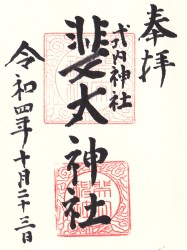 奉拝
式内神社
斐太神社
令和四年十月二十三日